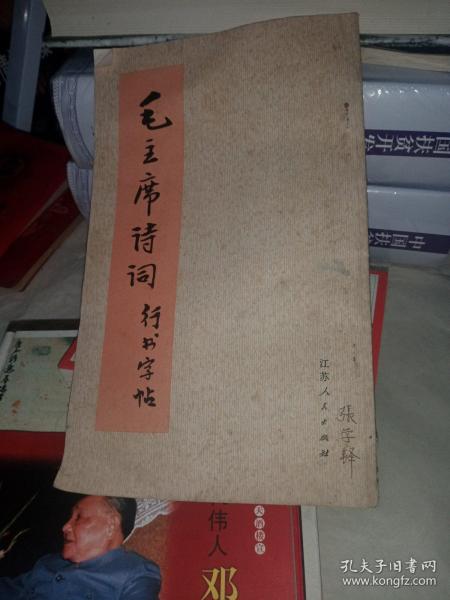 毛主席诗词 行书字帖
江苏人民出版社
张学铎
国扶贫开发
中国扶
天酒楼宫
伟人
邓
孔夫子旧书网
www.kongfz.com